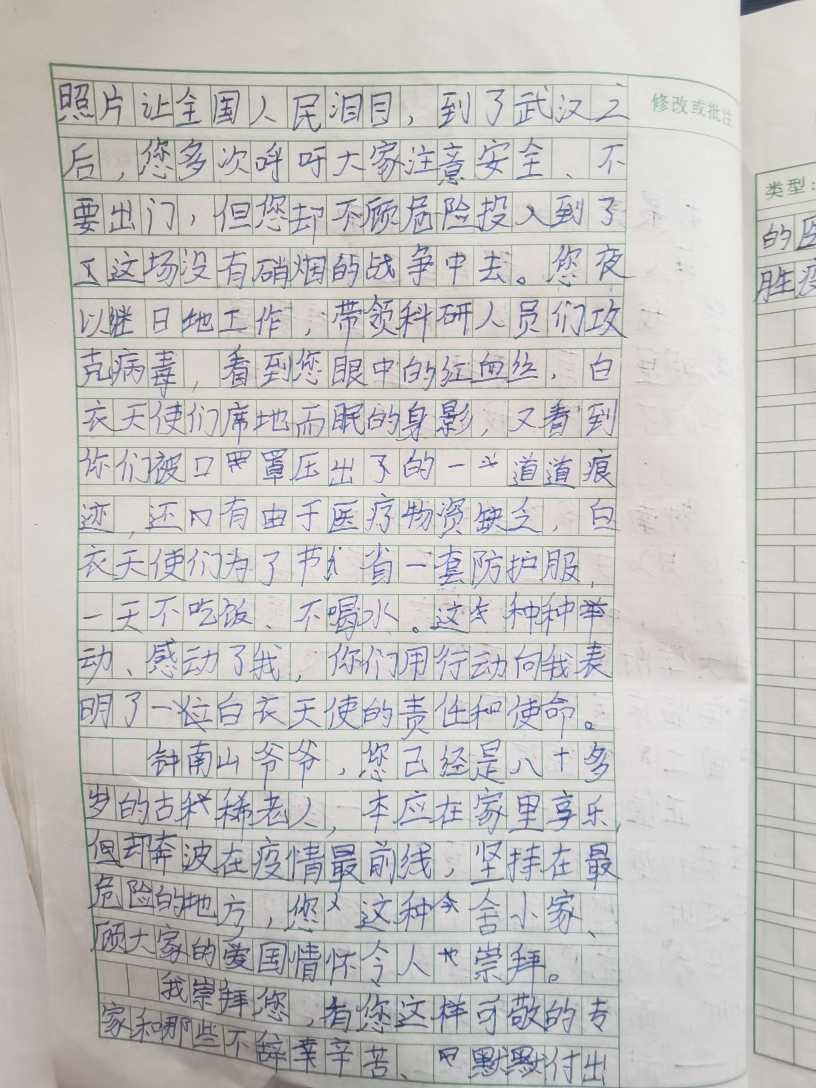 照片让全国人民泪目，到了武汉之
后，您多次呼吁大家注意安全、不
要出门，但您却不顾危险投入到了
这场没有硝烟的战争中去。您夜
以继日地工作，带领科研人员们攻
克病毒，看到您眼中的红血丝，白
衣天使们席地而眠的身影，又看到
你们被口罩压出了的一道道痕
迹，还有由于医疗物资缺乏，白
衣天使们为了节省一套防护服，
一天不吃饭、不喝水。这种种举
动、感动了我，你们用行动向我表
明了一位白衣天使的责任和使命。
钟南山爷爷，您已经是八十多
岁的古稀老人，本应在家里享乐，
但却奔波在疫情最前线，坚持在最
危险的地方，您这种舍小家、
顾大家的爱国情怀令人崇拜。
我崇拜您，有您这样可敬的专
家和那些不辞辛苦、默默付出
修改或批注
类型：
的医
胜疫